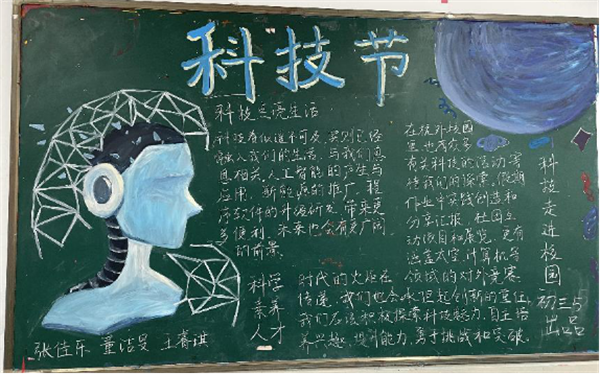 科技节
科技点亮生活
科技看似遥不可及,实则已经
融入我们的生活,与我们息
息相关。人工智能的产生与
应用,新能源的推广,程
序软件的升级研发,带来更
多便利,未来也会有更广阔
的前景。
在校外校园
里,也有众多
有关科技的活动等
待我们的探索。假期
作业中实践创造和
分享汇报,社团互
动项目和展览,更有
涵盖太空、计算机等
领域的对外竞赛。
科技走进校园
科学
素养
人才
时代的火炬在
传递,我们也会承担起创新的重任。
我们应该积极探索科技魅力,自主培
养兴趣,提升能力,勇于挑战和突破。
初三5
出品
张佳乐 董洁旻 王睿淇